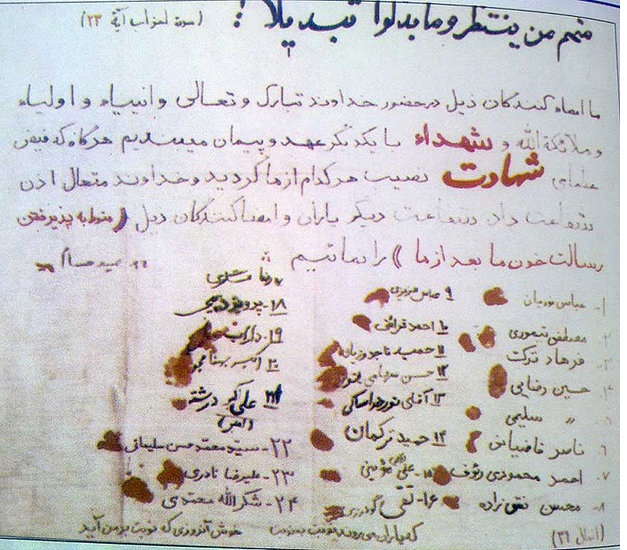 منهم من ینتظر و ما بدلوا تبدیلا! (سوره احزاب آیة ۲۳)
ما امضاء کنندگان ذیل در حضور خداوند تبارک و تعالی و انبیاء و اولیاء
و ملائکة الله و شهداء با یکدیگر عهد و پیمان میبندیم هرگاه که فیض
عظمای شهادت نصیب هر کدام از ما گردید و خداوند متعال اذن
شفاعت داد شفاعت دیگر یاران و امضا کنندگان ذیل (منوط به پذیرفتن
رسالت خون ما بعد از ما) را نمائیم
۱- عباس
۲- مصطفی تیموری
۳- فرهاد ترکت
۴- حسین رضایی
۵- " سلیمی
۶- ناصر
۷- احمد محمودی رئوف
۸- محسن نقی زاده
۹ عباس عزیزی
۱۰ احمد قرائی
۱۱ حمید تاجدوزیان
۱۲ حسن
۱۳ آقای
۱۴ حمید ترکمان
۱۵ علی مؤمنی
۱۶- تقی
۱۷ رضا
۱۸- پرویز
۱۹- داراب
۲۰- اکبر
۲۱ علی اکبر درشته
۲۲- سید محمد حسن سلیمانی
۲۳- علیرضا نادری
۲۴- شکرالله معتمدی
که یاران می‌روند نوبت به نوبت خوش آنروزی که نوبت بر من آید